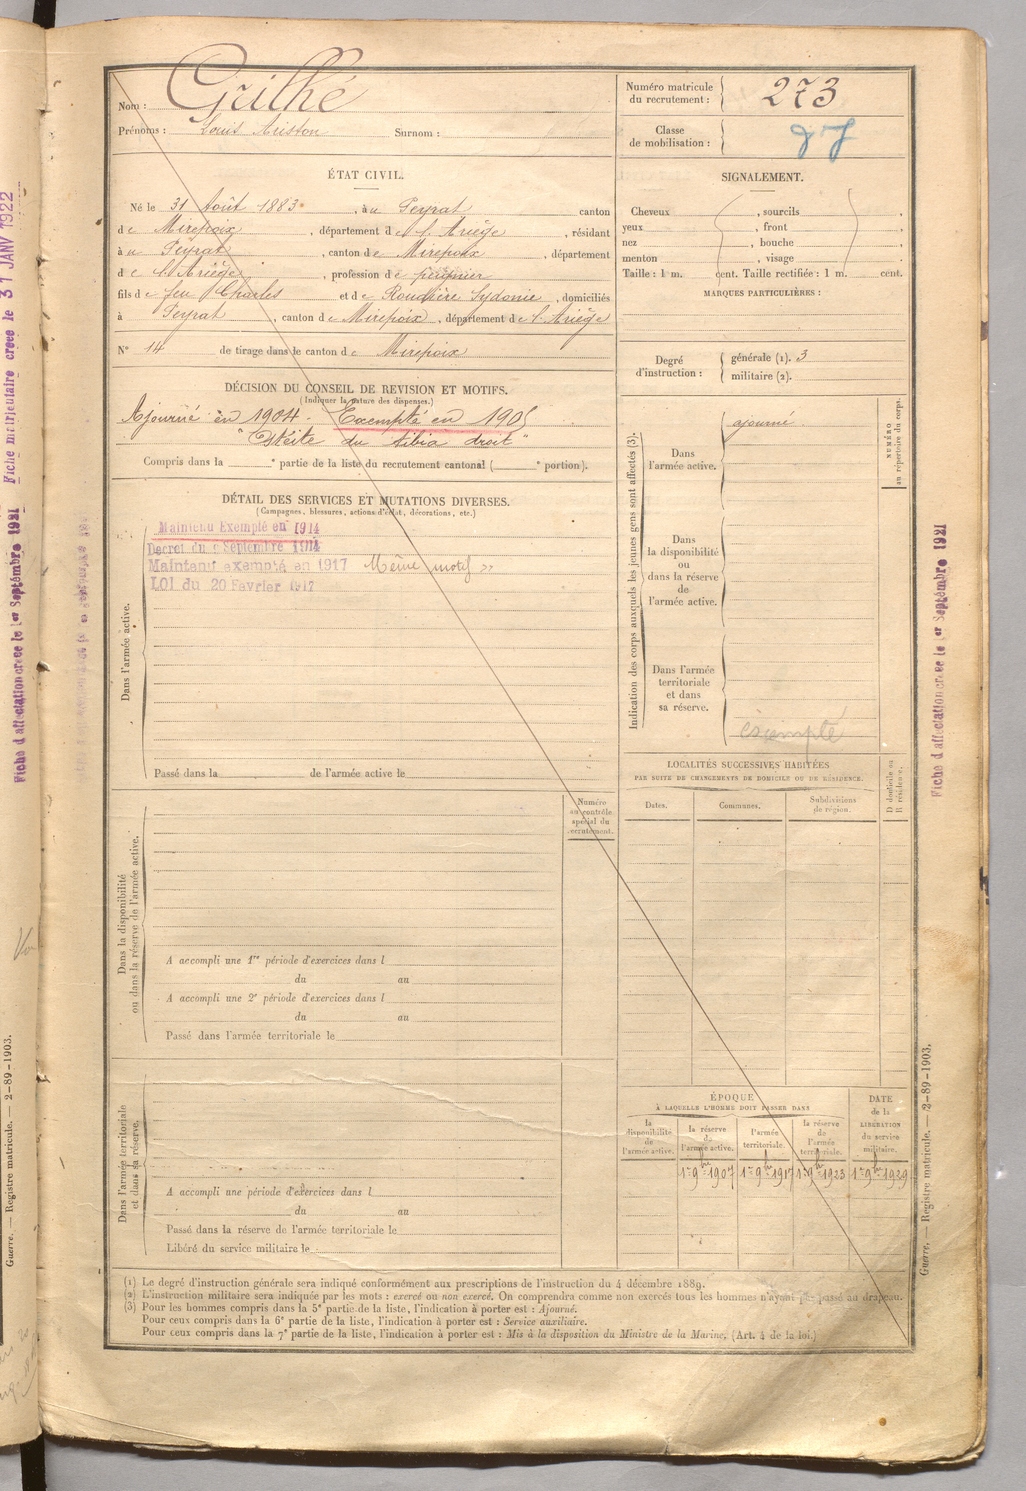 Nom : Grilhé
Prénoms : Louis Ariston Surnom :
Numéro matricule
du recrutement : 273
Classe
de mobilisation :
ÉTAT CIVIL.
Né le 31 Août 1883, à u Peyrat canton
de Mirepoix, département de l'Ariège, résidant
à u Peyrat, canton de Mirepoix, département
de l'Ariège, profession de peignier
fils de feu Charles et de Roudière Sydonie, domiciliés
à Peyrat, canton de Mirepoix, département de l'Ariège
N° 14 de tirage dans le canton de Mirepoix
SIGNALEMENT.
Cheveux , sourcils ,
yeux , front ,
nez , bouche ,
menton , visage
Taille : 1 m. cent. Taille rectifiée : 1 m. cent.
MARQUES PARTICULIÈRES :
Degré
d'instruction :
générale (1). 3
militaire (2).
DÉCISION DU CONSEIL DE REVISION ET MOTIFS.
(Indiquer la nature des dispenses.)
Ajourné en 1904 - Exempté en 1905
"Ostéite du tibia droit"
Compris dans la e partie de la liste du recrutement cantonal ( e portion).
DÉTAIL DES SERVICES ET MUTATIONS DIVERSES.
(Campagnes, blessures, actions d'éclat, décorations, etc.)
Maintenu Exempté en 1914
Decret du 9 Septembre 1914
Maintenu exempté en 1917 Même motif »
LOI du 20 Fevrier 1917
Dans l'armée active.
Passé dans la de l'armée active le
Numéro
au contrôle
spécial du
recrutement.
Dans la disponibilité
ou dans la réserve de l'armée active.
A accompli une 1re période d'exercices dans l
du au
A accompli une 2e période d'exercices dans l
du au
Passé dans l'armée territoriale le
Dans l'armée territoriale
et dans sa réserve.
A accompli une période d'exercices dans l
du au
Passé dans la réserve de l'armée territoriale le
Libéré du service militaire le
Indication des corps auxquels les jeunes gens sont affectés (3).
NUMÉRO
au répertoire du corps.
Dans
l'armée active.
ajourné
Dans
la disponibilité
ou
dans la réserve
de
l'armée active.
Dans l'armée
territoriale
et dans
sa réserve.
exempté
LOCALITÉS SUCCESSIVES HABITÉES
PAR SUITE DE CHANGEMENTS DE DOMICILE OU DE RÉSIDENCE.
Dates. Communes. Subdivisions
de région.
D domicile ou
R résidence.
ÉPOQUE
À LAQUELLE L'HOMME DOIT PASSER DANS
la
disponibilité
de
l'armée active.
la réserve
de
l'armée active.
l'armée
territoriale.
la réserve
de
l'armée
territoriale.
DATE
de la
LIBÉRATION
du service
militaire.
1er 9bre 1907 1er 9bre 1917 1er 9bre 1923 1er 9bre 1929
(1) Le degré d'instruction générale sera indiqué conformément aux prescriptions de l'instruction du 4 décembre 1889.
(2) L'instruction militaire sera indiquée par les mots : exercé ou non exercé. On comprendra comme non exercés tous les hommes n'ayant pas passé au drapeau.
(3) Pour les hommes compris dans la 5e partie de la liste, l'indication à porter est : Ajourné.
Pour ceux compris dans la 6e partie de la liste, l'indication à porter est : Service auxiliaire.
Pour ceux compris dans la 7e partie de la liste, l'indication à porter est : Mis à la disposition du Ministre de la Marine. (Art. 4 de la loi.)
Fiche d'affectation creee le 1er Septembre 1921
Guerre. — Registre matricule. — 2-89-1903.
Fiche matriculaire creee le 31 JANV 1922
Fiche d'affectation creee le 1er Septembre 1921
Guerre. — Registre matricule. — 2-89-1903.